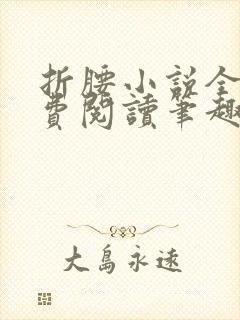 折腰小说全
費閱讀筆趣
大島永遠